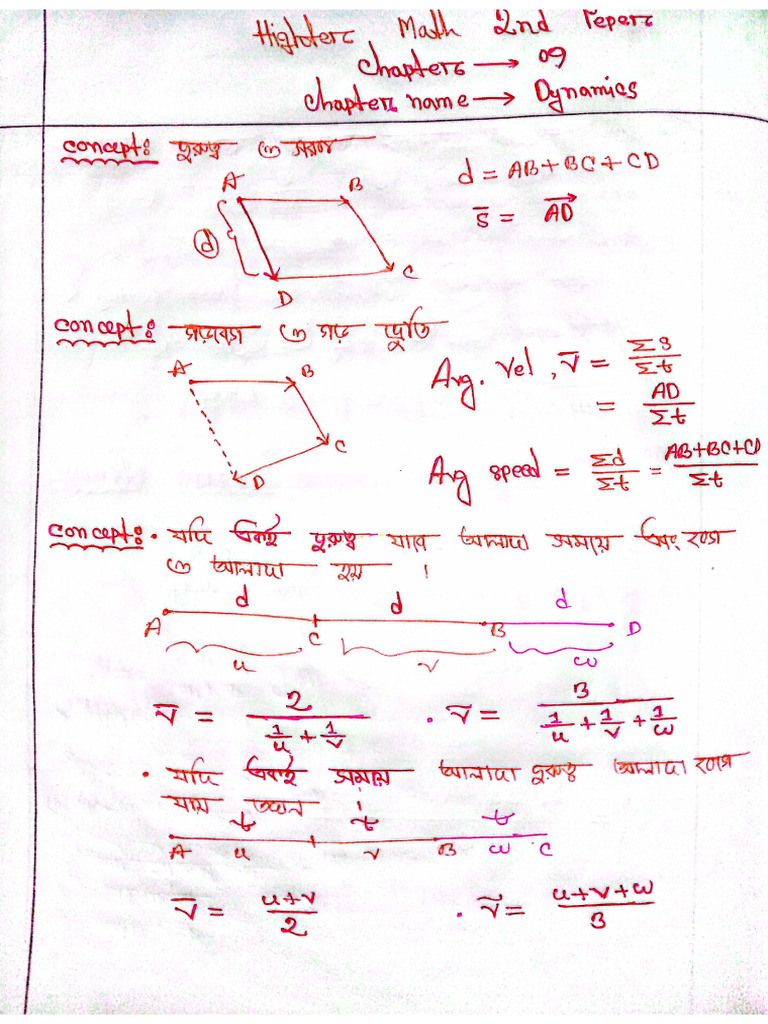 Higher Math 2nd Peper
Chapter → 09
Chapter name → Dynamics
concept: দূরত্ব ও সরণ
d = AB + BC + CD
s̄ = AD→
A B
d
C
D
concept: গড়বেগ ও গড় দ্রুতি
A B
C
D
Avg. Vel, v̄ = Σs/Σt
= AD/Σt
Avg speed = Σd/Σt = AB+BC+CD/Σt
concept: • যদি একই দূরত্ব যাবে আলাদা সময়ে এবং বেগ
ও আলাদা হয় ।
d d d
A C B D
u v w
v̄ = 2/(1/u + 1/v) • v̄ = 3/(1/u + 1/v + 1/w)
• যদি একই সময়ে আলাদা দূরত্ব আলাদা বেগে
যায় তখন ।
t t t
A u v B w C
v̄ = u+v/2 • v̄ = u+v+w/3